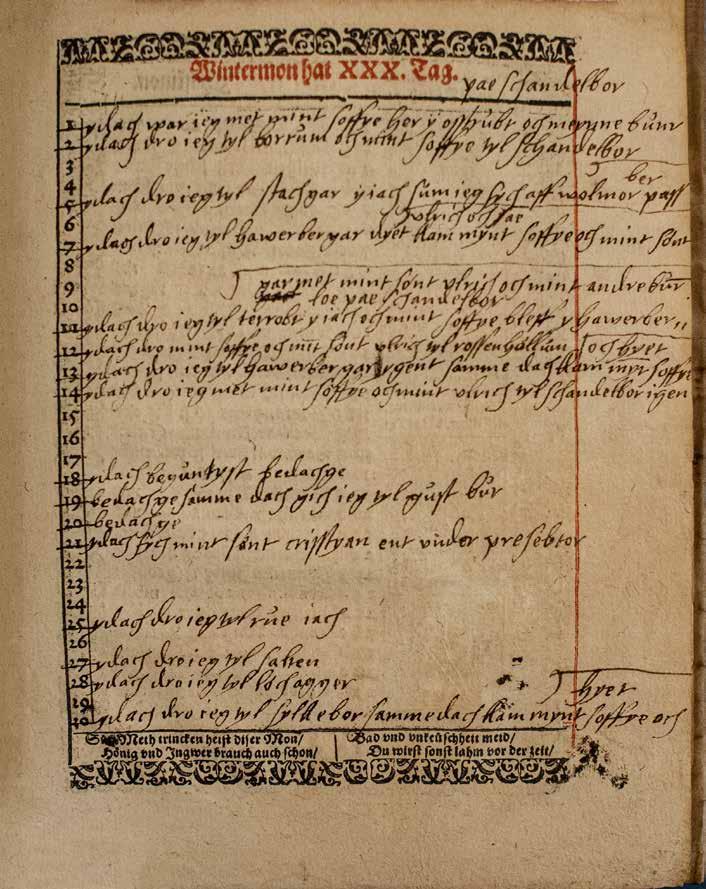 Wintermon hat XXX. Tag.
pae schandelbor
1 ydach war ieg met mint soffye her y ostrubt och meynne bunr
2 ydach dro ieg tyl borrum och mint soffye tyl schandelbor
3
4 ber
5 ydach dro ieg tyl stachgar y iach sum ieg sych aff wolmor pass
6 vlrich och pae
7 ydach dro ieg tyl hawerber gar dyet kam mynt soffye och mint sónt
8
9 war met mint sónt vlrich och mint andre bur
10 loe pae schandelbor
11 ydach dro ieg tyl terrobt y iach och mint soffye bleff y hawerber
12 ydach dro mint soffye och mint sónt vlrich tyl rossenhollum och hyet
13 ydach dro ieg tyl hawerber gar ygent samme dach kam myt soffye
14 ydach dro ieg met mint soffye och mint vlrich tyl schandelbor igen
15
16
17
18 ydach beguntyst bedachge
19 bedachge samme dach gich ieg tyl gust bur
20 bedachge
21 ydach fych mint sónt crisstyan ent under presebtor
22
23
24
25 ydach dro ieg tyl rue iach
26
27 ydach dro ieg tyl salten
28 ydach dro ieg tyl schagger
29 hyet
30 ydach dro ieg tyl sylkebor samme dach kam mynt soffye och
Meth trincken heist diser Mon/
Hönig vnd Ingwer brauch auch schon/
Bad vnd vnkeüschheit meid/
Du wirst sonst lahm vor der zeit/